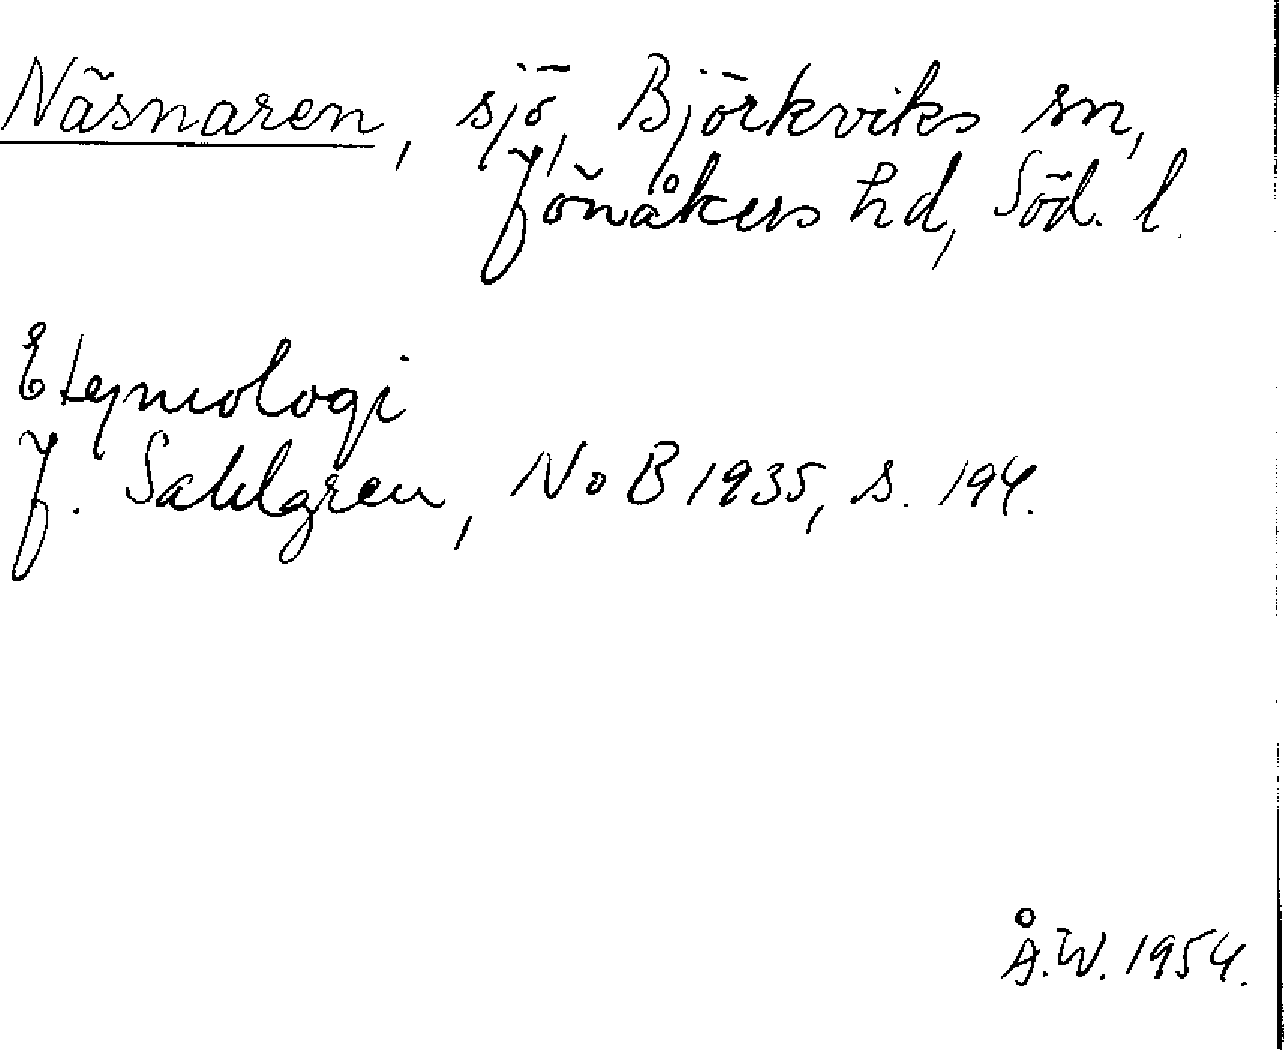 Näsnaren, sjö, Björkviks sn,
Jönåkers hd, Söd. l.
Etymologi
J. Sahlgren, NoB 1935, s. 194.
Å.W. 1954.